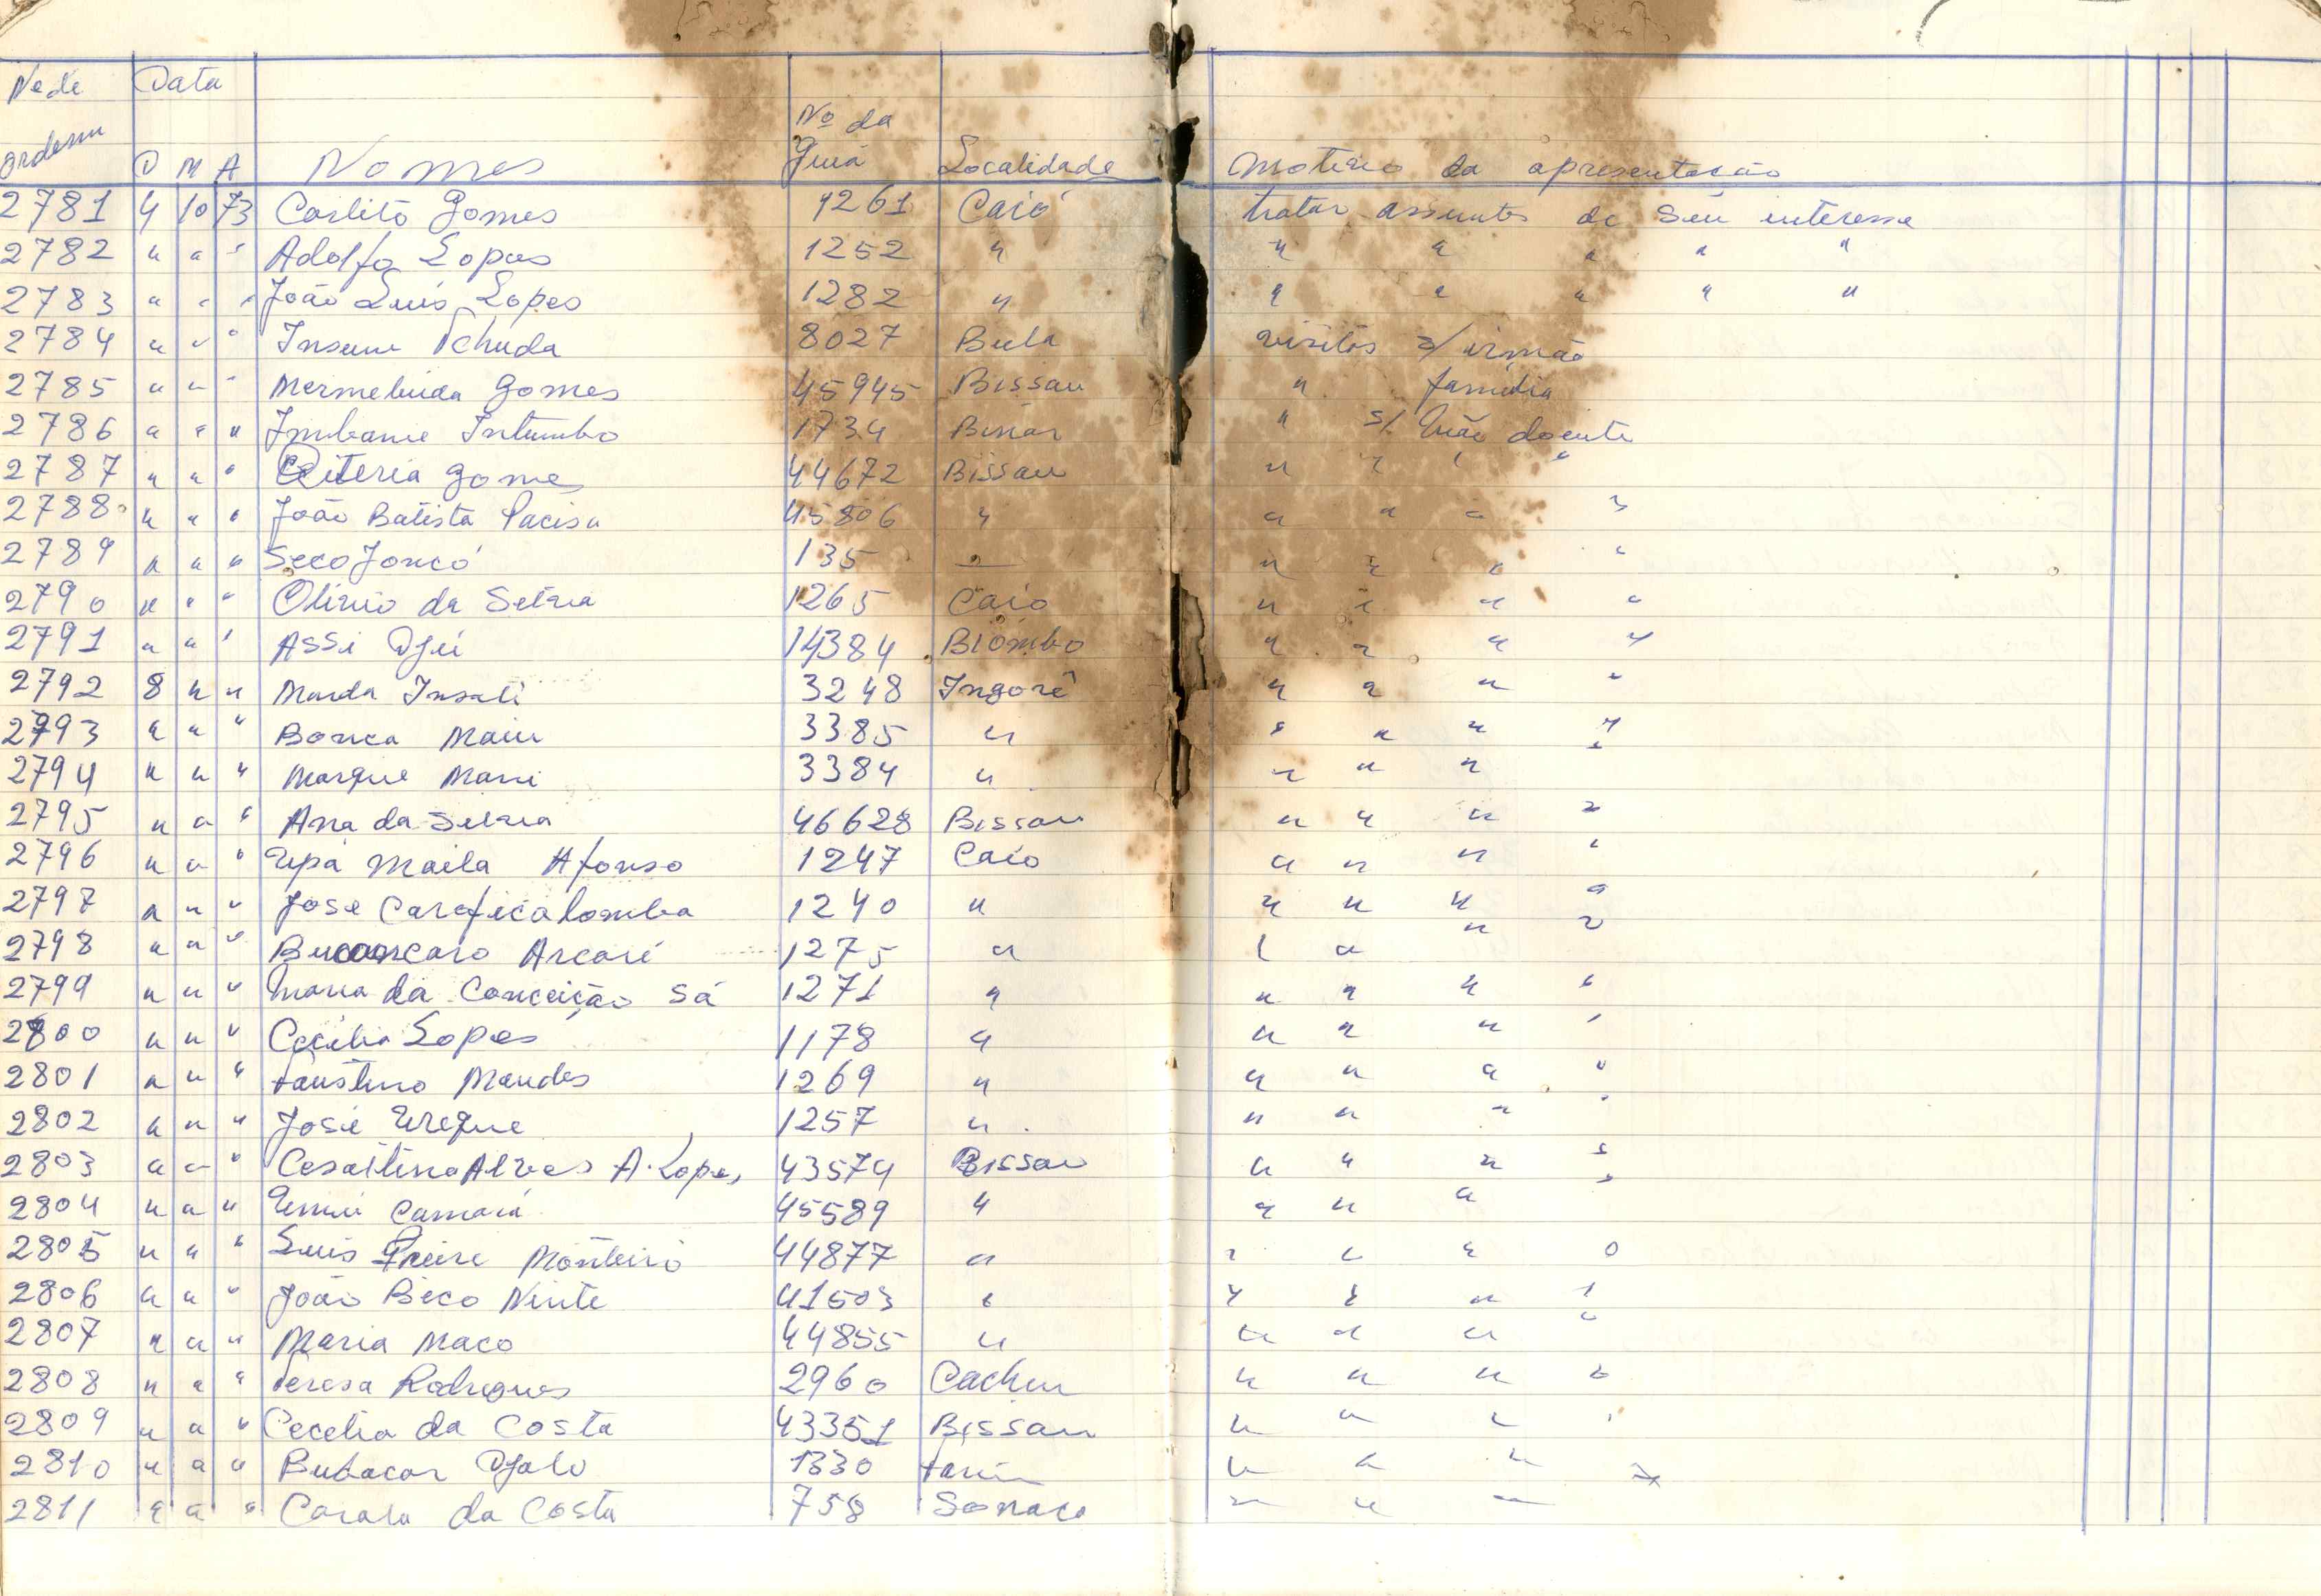 Nº de Data
Nº da
ordem D M A Nomes Guia Localidade Motivo da apresentação
2781 4 10 73 Carlito Gomes 1261 Caió tratar assuntos de seu interesse
2782 " " " Adolfo Lopes 1252 " " " " " "
2783 " " " João Luis Lopes 1282 " " " " " "
2784 " " " Tchuda 8027 Bula visitar s/ irmão
2785 " " " Gomes 45945 Bissau " família
2786 " " " Imbame Intumbo 1734 Binar " s/ Irmão doente
2787 " " " Quiteria Gomes 44672 Bissau " " " "
2788 " " " João Batista 45806 " " " " "
2789 " " " Seco Joncó 135 — " " " "
2790 " " " da Selva 1265 Caió " " " "
2791 " " " Assi Djú 14384 Biombo " " " "
2792 8 " " Insali 3248 Ingoré " " " "
2793 " " " Bonca 3385 " " " " "
2794 " " " Marque 3384 " " " " "
2795 " " " Ana da Selva 46628 Bissau " " " "
2796 " " " Upá Maila Afonso 1247 Caió " " " "
2797 " " " José 1240 " " " " "
2798 " " " 1275 " " " " "
2799 " " " Maria da Conceição Sá 1271 " " " " "
2800 " " " Cecilia Lopes 1178 " " " " "
2801 " " " Faustino Mendes 1269 " " " " "
2802 " " " José Ureque 1257 " " " " "
2803 " " " Alves A. Lopes 43574 Bissau " " " "
2804 " " " Camará 45589 " " " " "
2805 " " " Luis Freire Monteiro 44877 " " " " "
2806 " " " João Beco 41503 " " " " "
2807 " " " Maria Maco 44855 " " " " "
2808 " " " Teresa Rodrigues 2960 Cacheu " " " "
2809 " " " Cecelia da Costa 43351 Bissau " " " "
2810 " " " Bubacar Djalo 1330 Farim " " " "
2811 " " " da Costa 758 Sonaco " " "